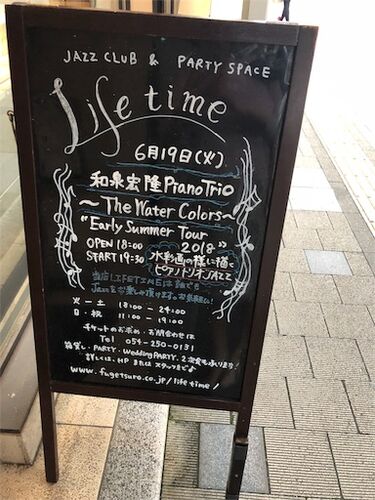 JAZZ CLUB & PARTY SPACE
Life time
6月19日(火)
和泉宏隆 Piano Trio
〜The Water Colors〜
"Early Summer Tour
2018"
OPEN 18:00
START 19:30
水彩画の様に描く
ピアノトリオJAZZ
当店LIFETIMEは誰でも
Jazzをお楽しみ頂けます。お気軽に!
火－土 18:00－24:00
日・祝 11:00－19:00
チケットのお求め・お問合わせは
Tel 054-250-0131
箱貸し・PARTY・Wedding PARTY・2次会も承ります!
詳しくは、HP または スタッフまで♪
www.fugetsuro.co.jp/lifetime/